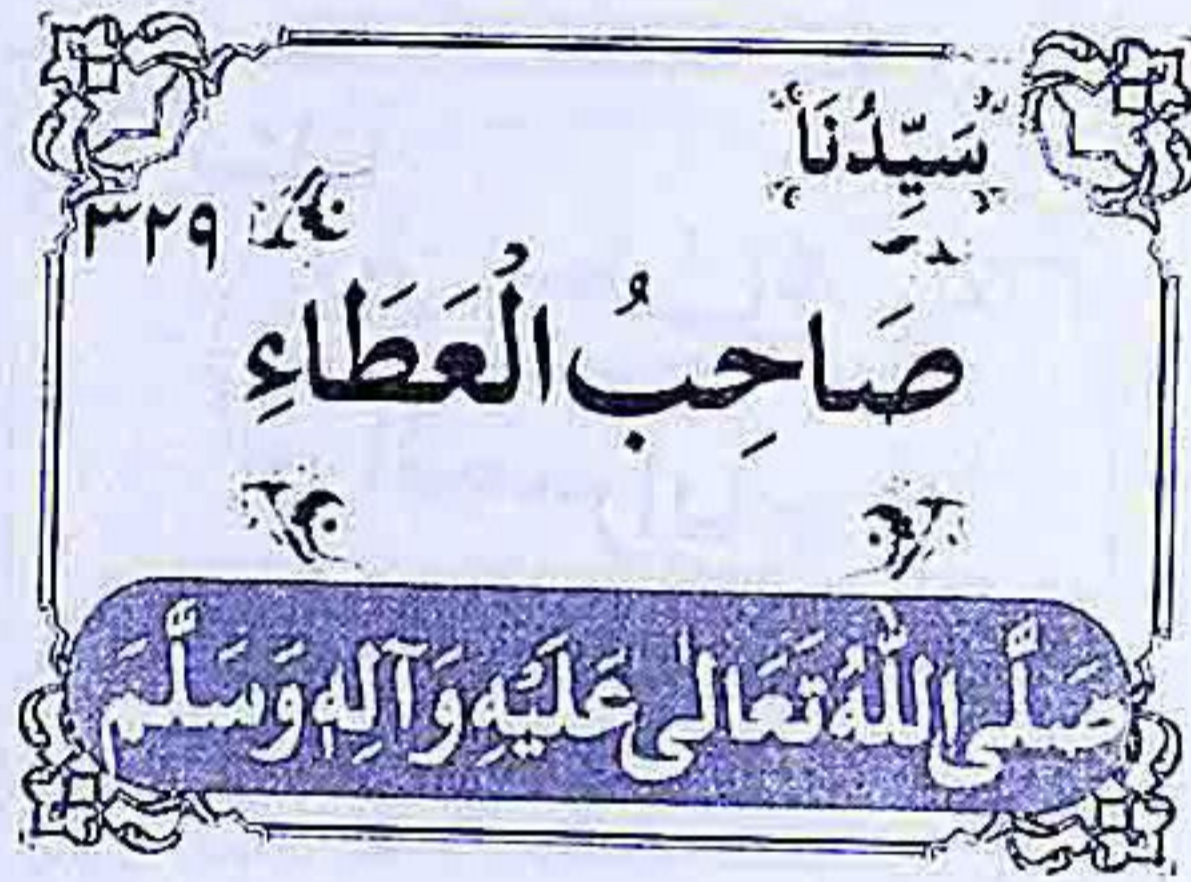 سَيِّدُنَا
٣٢٩
صَاحِبُ الْعَطَاءِ
صَلَّى اللّٰهُ تَعَالٰى عَلَيْهِ وَآلِهٖ وَسَلَّمَ